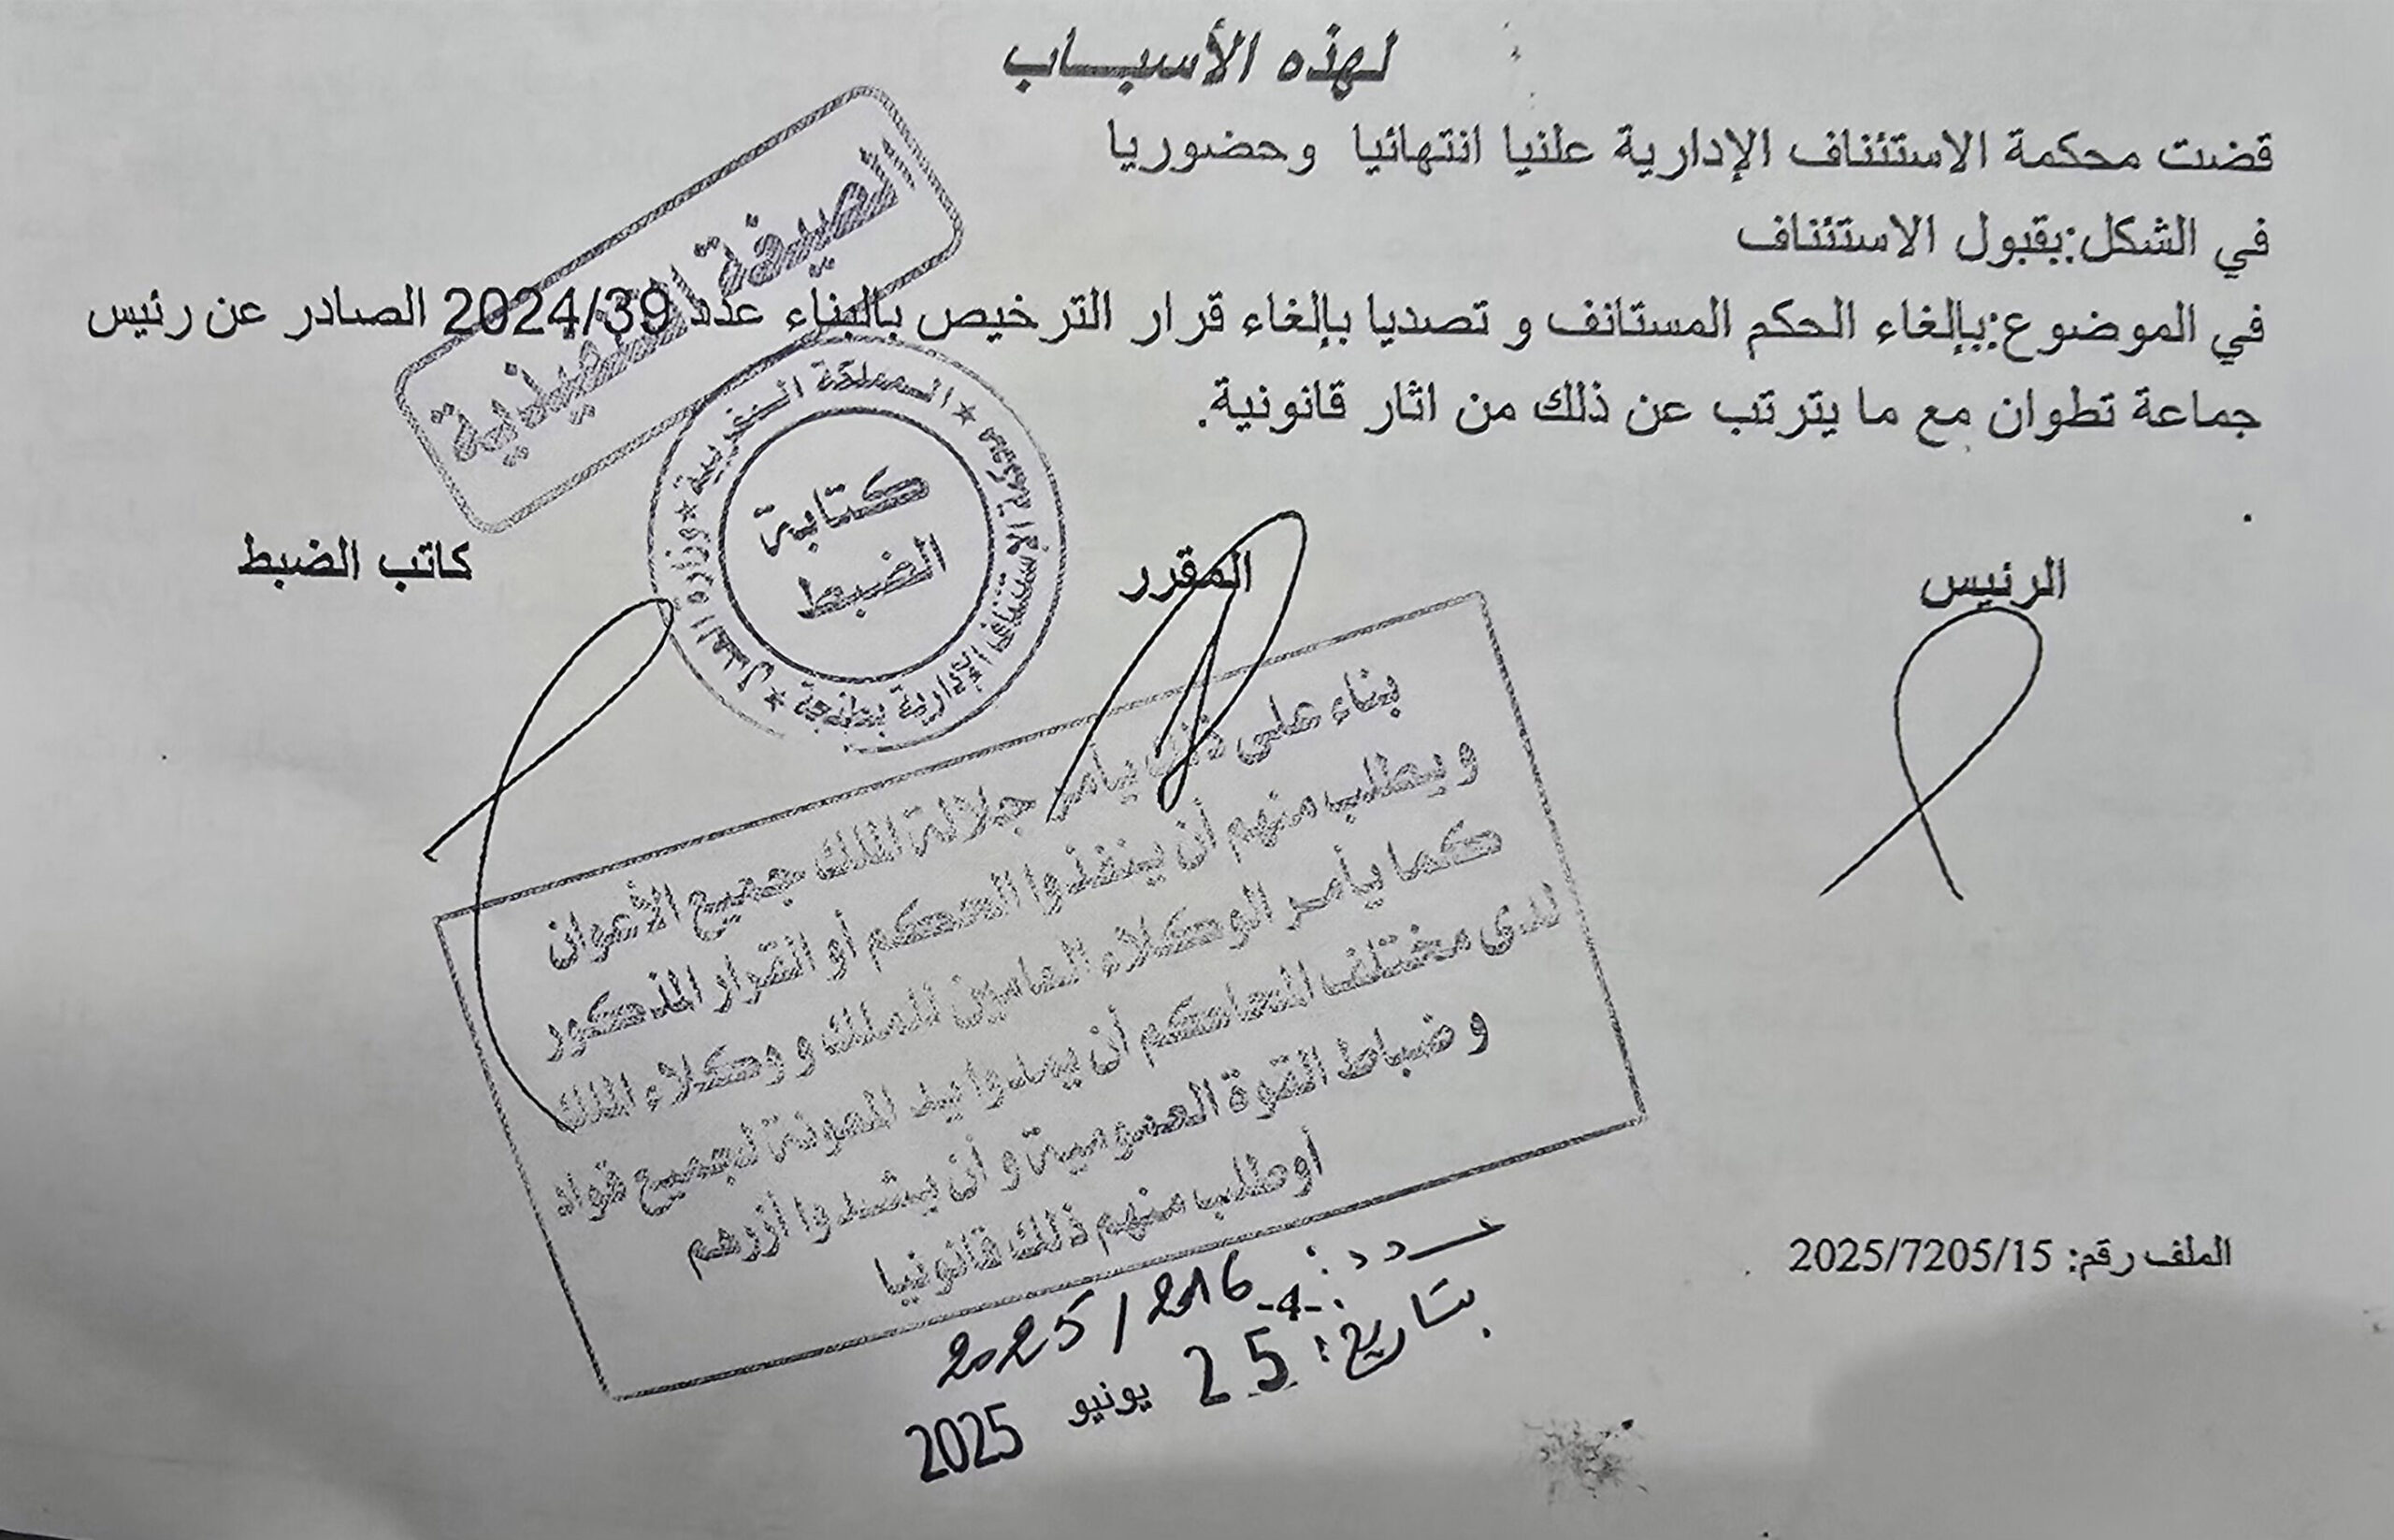 لهذه الأسبـــاب
قضت محكمة الاستئناف الإدارية علنيا انتهائيا وحضوريا
في الشكل:بقبول الاستئناف
في الموضوع:بإلغاء الحكم المستانف و تصديا بإلغاء قرار الترخيص بالبناء عدد 2024/39 الصادر عن رئيس
جماعة تطوان مع ما يترتب عن ذلك من اثار قانونية.
الصيغة التنفيذية
الرئيس
المقرر
كاتب الضبط
المملكة المغربية ★ وزارة العدل ★ الإستئناف الإدارية بطنجة
كتابة
الضبط
بناء على ذلك يامر جلالة الملك جميع الأعوان
ويطلب منهم أن ينفذوا الحكم أو القرار المذكور
كما يأمر الوكلاء العامين للملك و وكلاء الملك
لدى مختلف المحاكم أن يمدوا يد المعونة لجميع قواد
وضباط القوة العمومية و أن يشدوا أزرهم
أوطلب منهم ذلك قانونيا
عدد: 2025/2216
-4-
بتاريخ: 25 يونيو 2025
الملف رقم: 2025/7205/15